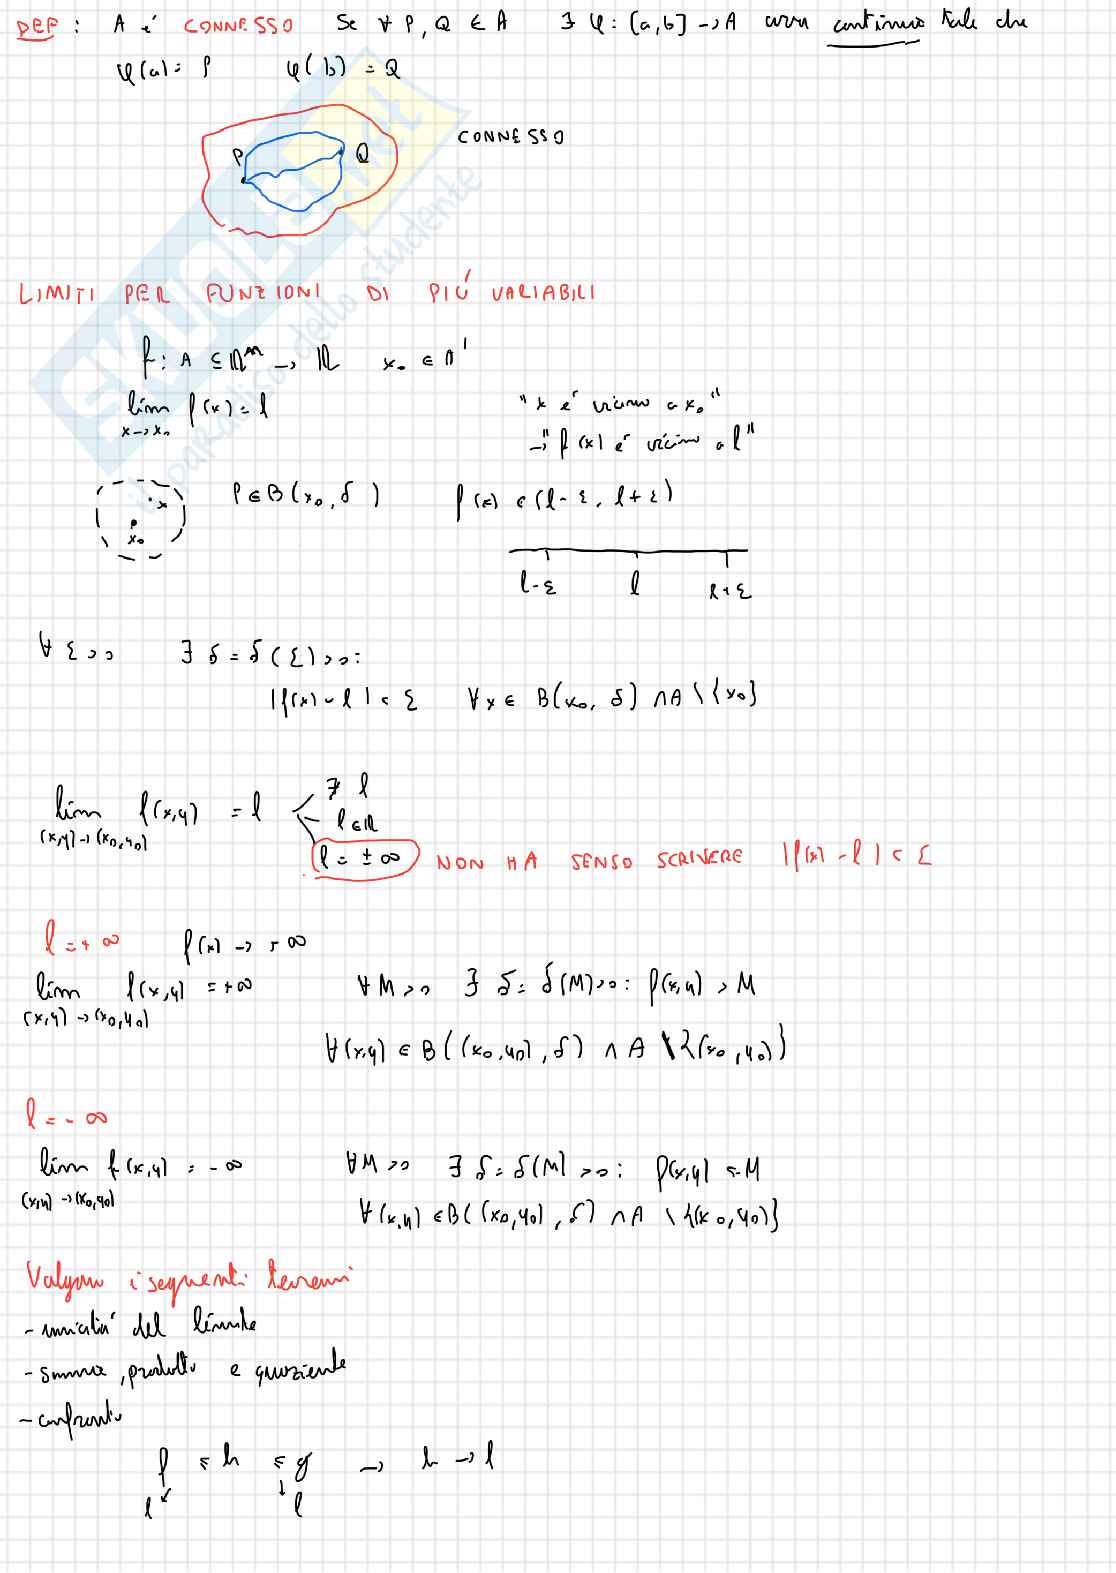 DEF : A é CONNESSO Se ∀ P, Q ∈ A ∃ φ : [a,b] → A curva continua tale che
φ(a) = P φ(b) = Q
P Q CONNESSO
LIMITI PER FUNZIONI DI PIÚ VARIABILI
f : A ⊆ ℝⁿ → ℝ x₀ ∈ A'
lim f(x) = l "x é vicino a x₀"
x→x₀
→ "f(x) é vicino a l"
x x₀ P ∈ B(x₀, δ) f(x) ∈ (l-ε, l+ε)
l-ε l l+ε
∀ ε>0 ∃ δ = δ(ε)>0 :
|f(x) - l| < ε ∀x ∈ B(x₀, δ) ∩ A \ {x₀}
lim f(x,y) = l ∄ l
(x,y)→(x₀,y₀) l∈ℝ
l = ±∞ NON HA SENSO SCRIVERE |f(x) - l| < ε
l = +∞ f(x) → +∞
lim f(x,y) = +∞ ∀M>0 ∃ δ = δ(M)>0 : f(x,y) > M
(x,y)→(x₀,y₀)
∀(x,y) ∈ B((x₀,y₀), δ) ∩ A \ {(x₀,y₀)}
l = -∞
lim f(x,y) = -∞ ∀M>0 ∃ δ = δ(M)>0 : f(x,y) <-M
(x,y)→(x₀,y₀)
∀(x,y) ∈ B((x₀,y₀), δ) ∩ A \ {(x₀,y₀)}
Valgono i seguenti teoremi
- unicitá del limite
- somma, prodotto e quoziente
- confronto
f ≤ h ≤ g → h → l
l l
SKUOLA.net
il paradiso dello studente